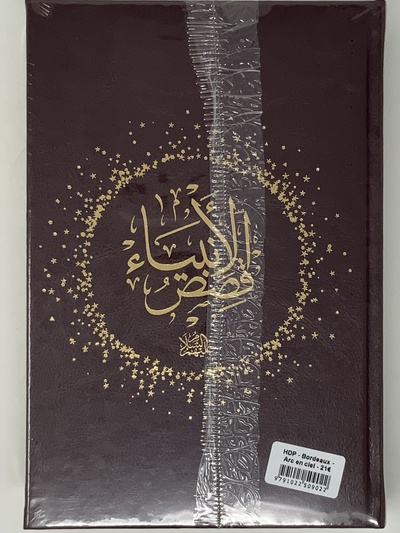 قصص
الأنبياء
عليهم السلام
HDP - Bordeaux -
Arc en ciel - 21€
9791022509022